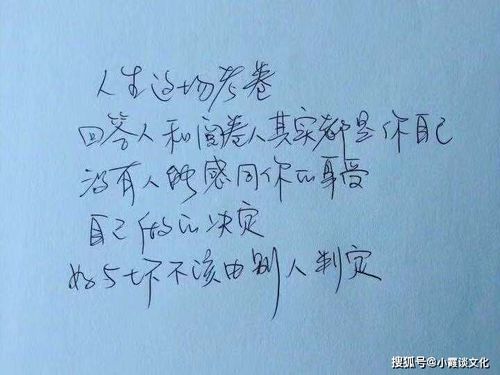 人生这场考卷
回答人和阅卷人其实都是你自己
没有人能感同你的享受
自己做的决定
好与坏不该由别人判定
搜狐号@小霞谈文化